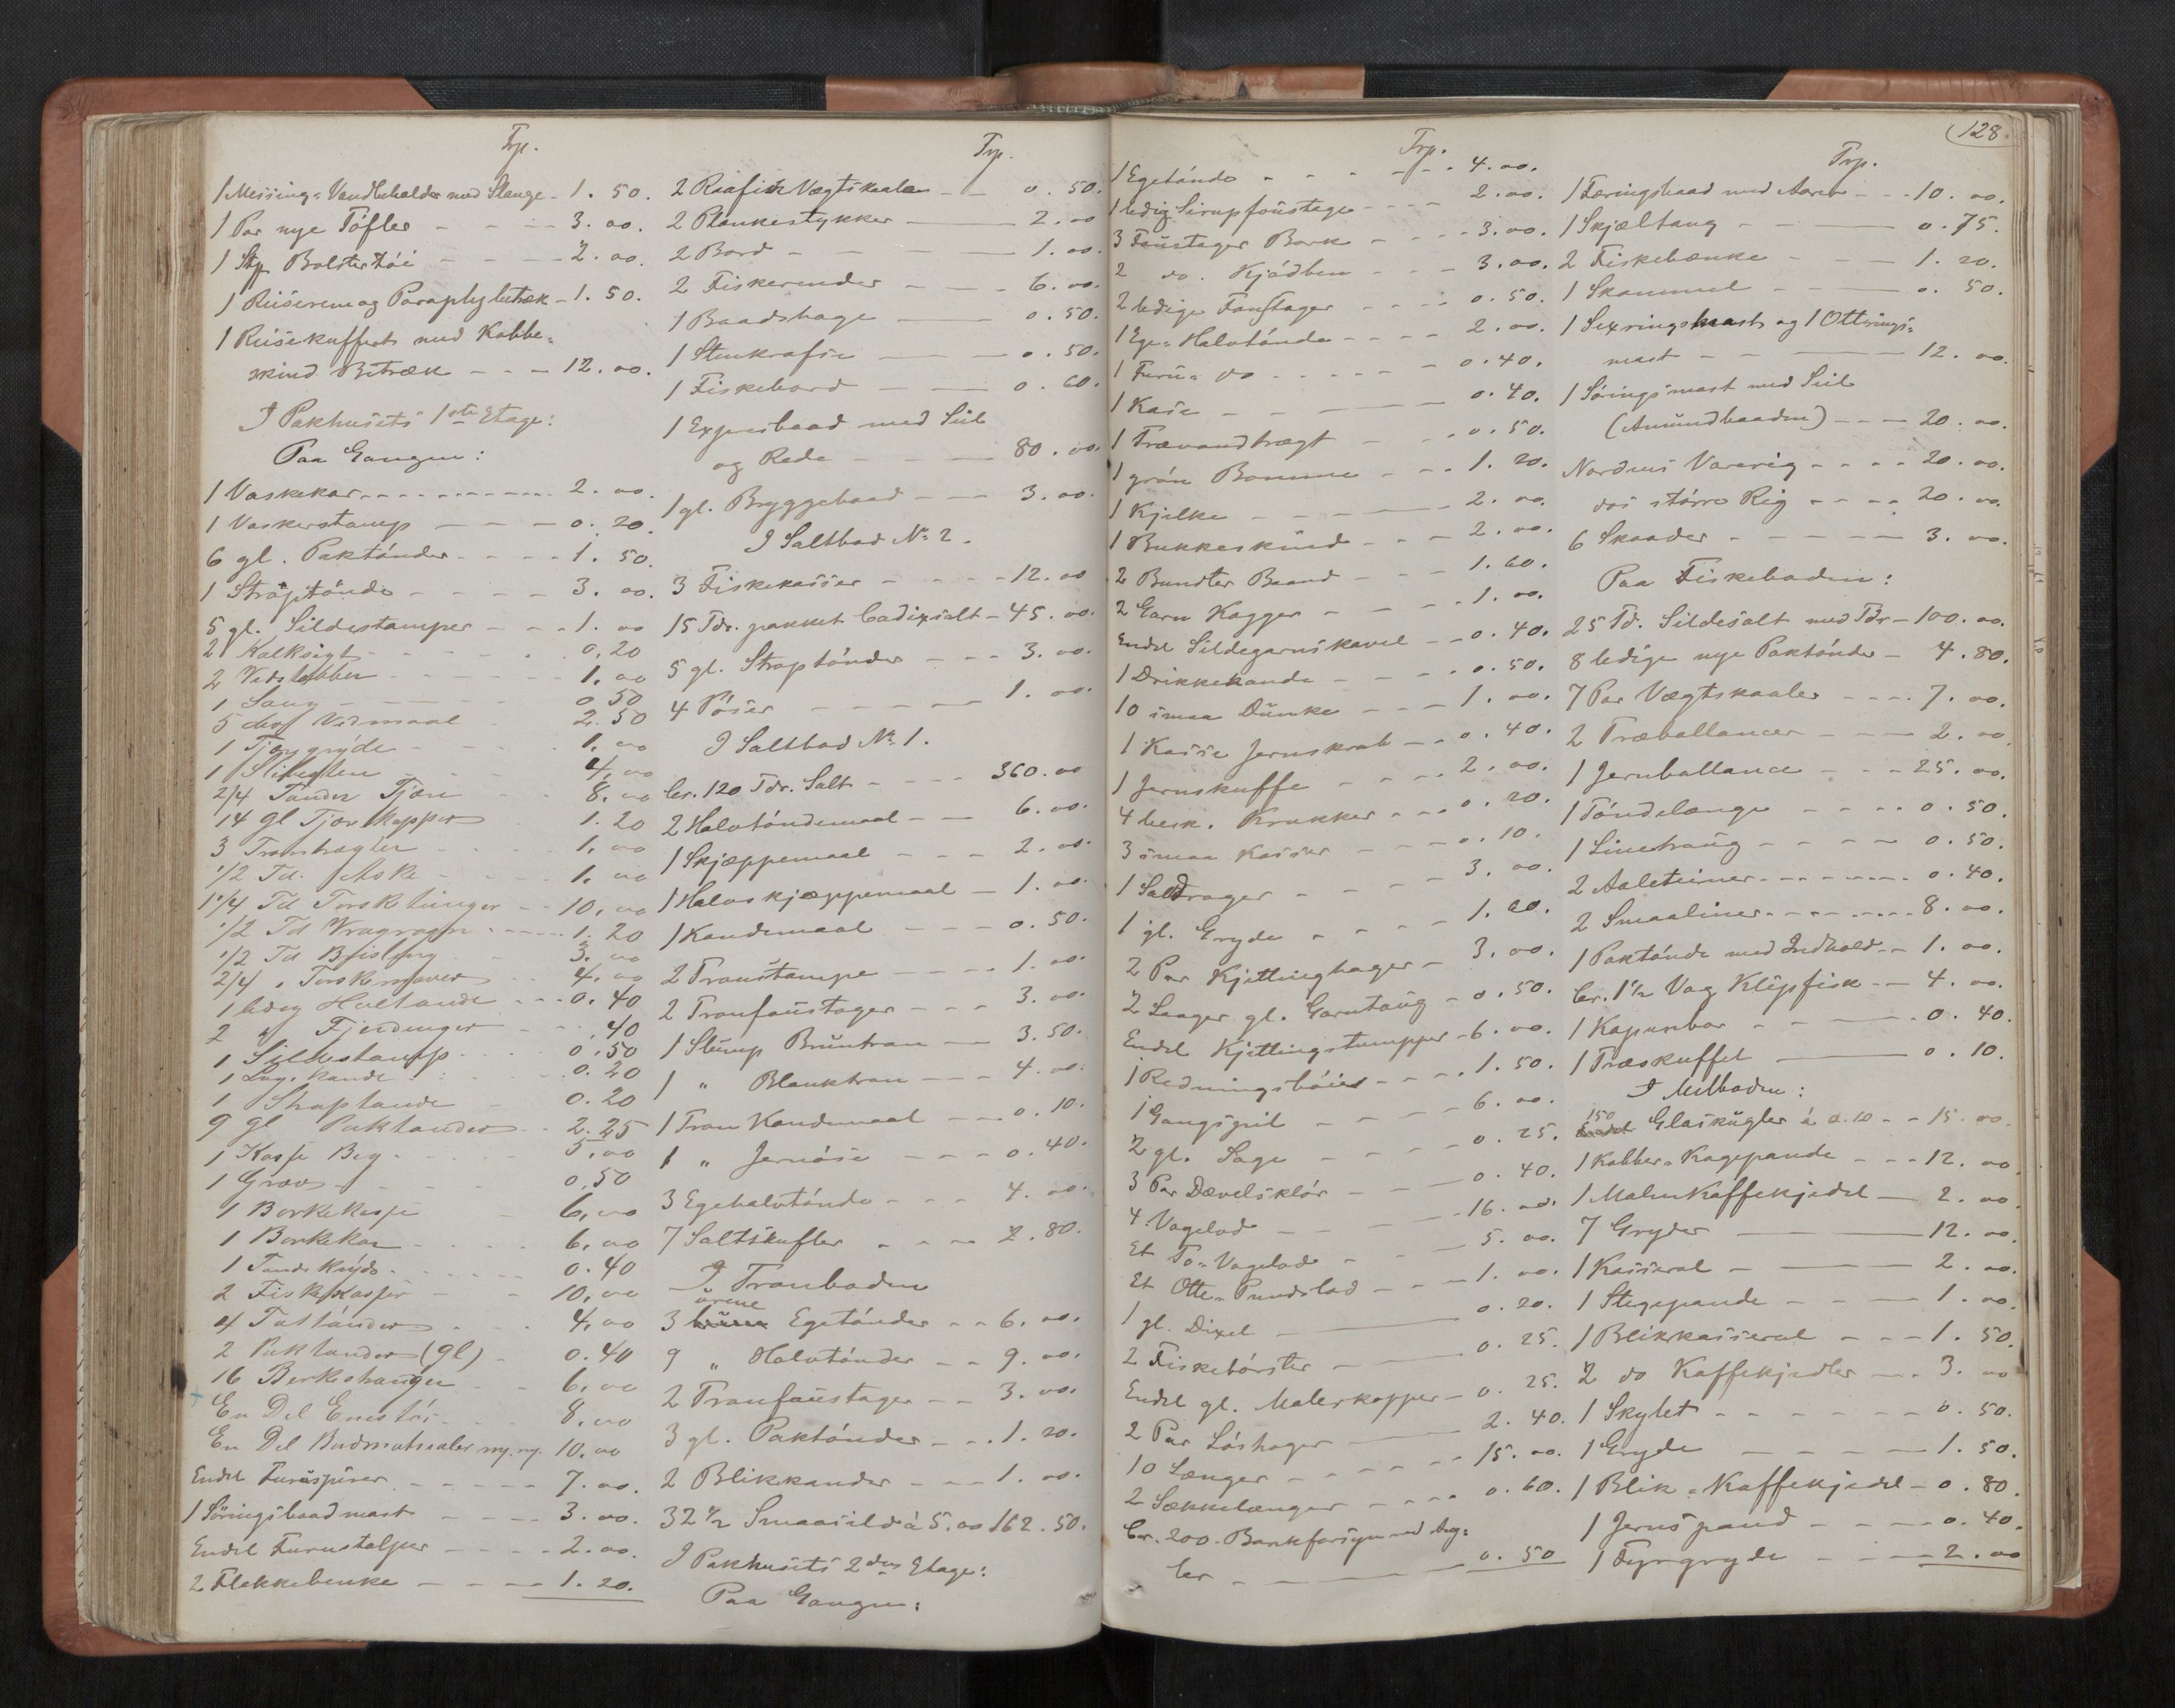 Trp.
1 Messing-Vandbeholder med Slange - 1. 50.
1 Par nye Töfler - - - - 3. 00.
1 Stp. Bolstertöi - - - - 2. 00.
1 Reiserem og Paraplybetræk - 1. 50.
1 Reisekuffert med Kobbe-
skind Betræk - - - 12. 00.
I Pakhusets 1ste Etage:
Paa Gangen:
1 Vaskekar - - - - 2. 00.
1 Vaskerstamp - - - 0. 20.
6 gl. Paktönder - - - - 1. 50.
1 Straptönde - - - - 3. 00.
5 gl. Sildestamper - - - 1. 00
2 Kalksigt - - - 0.20
2 Vedslabber - - - 1. 00
1 Saug - - - 0 50
5 Vedmaal - 2. 50
1 Tjæregryde - - - 1. 00
1 Slibesten - - 4. 00
2/4 Tønder Tjære - - 8. 00
14 gl Tjærekopper 1. 20
3 Trantragter - - 1. 00
1/2 Td. Aske - - 1. 00
1 1/4 Td Torsktunger - - 10. 00
1/2 Td Vragrogn - - - 1. 20
1/2 Td - 3. 00
2/4 " Torskemaver 4. 00
1 ledig Haltønde - - - 0. 40
2 " Fjerdinger - - .40
1 Sildestamp - - 0.50
1 kande - - 0. 20
1 Straptønde - 0. 20
9 gl Paktønder - - 2. 25
1 Kasse Beg - - - 5. 00
1 Grav - - - 0.50
1 Barkekasse - 6. 00
1 Barkekar - - - 6. 00
1 Tønde - - - 0. 40
2 Fiskekasser - - 10. 00
4 Fattønder - - 4. 00
2 Paktønder (gl) - 0. 40
16 Birkestranger - - 6. 00
En Del - - 8. 00
En Del Bødmaterialer ny. ny. 10. 00
Endel Furuspirer - - - - 7. 00.
1 Söringsbaadmast - - - 3. 00.
Endel Furustolper - - - - 2. 00.
2 Flekkebenke - - - - 1. 20.
Trp.
2 Vægtskaaler - - 0. 50.
2 Plankestykker - 2. 00
2 Bord - - - 1. 00.
2 Fiskerender - - - 6. 00.
1 Baadshage - 0. 50.
1 Stenkrafse - 0. 50.
1 Fiskebord - 0. 60.
1 Expresbaad med Seil
og Rede - - - 80. 00.
1 gl. Bryggebaad - - - 3. 00.
I Saltbod No 2.
3 Fiskekasser - - - - 12. 00
15 Tdr. pakket Cadixsalt - 45. 00.
5 gl. Straptönder - - - 3. 00.
4 Pöser - - - - 1. 00.
I Saltbod No 1.
Cr. 120 Tdr. Salt - - - - 360. 00
2 Halvtöndemaal - - 6. 00.
1 Skjæppemaal - - - 2. 00.
1 Halvskjæppemaal - 1. 00.
1 Kandemaal - - - 0. 50.
2 Transtampe - - - - 1. 00.
2 Tranfoustager - - - 3. 00.
1 Slump Bruntran - - 3. 50.
1 " Blanktran - - - 4. 00.
1 Tran Kandemaal - - 0. 10.
1 " Jernöse - - - 0. 40.
3 Egehalvtönde - - - 4. 00.
7 Saltskufler - - - 2. 80.
I Tranboden
urene
3 Egetönder - - 6. 00.
9 " Halvtönder - - 9. 00.
2 Tranfoustager - - 3. 00.
3 gl. Paktönder - - . 1. 20.
2 Blikkander - - - 1. 00.
32 1/2 Smaasild à 5.00 162. 50.
I Pakhusets 2den Etage:
Paa Gangen:
128
Trp.
1 Egetönde - - - - - 4. 00.
1 ledig Sirupfoustage - - - - 2. 00.
3 Foustager Bark - - - - 3. 00.
2 do. Kjödben - - - 3. 00.
2 ledige Foustager - - - - 0. 50.
1 Ege-Halvtönde - - - - 2. 00.
1 Furu- do - - - - - 0. 40.
1 Kase - - - 0. 40.
1 Trævandtragt - - - 0. 50.
1 grön Bomme - - - 1. 20.
1 Kjelke - - - 2. 00.
1 Bukkeskind - - - 2. 00.
2 Bundter Baand - - - 1. 60.
2 Garn Kagger - - - - 1. 00.
Endel Sildegarnskavel - - 0. 40.
1 Drikkekande - - - - 0. 50.
10 smaa Dunke - - - 1. 00.
1 Kasse Jernskrab - - 0. 40.
1 Jernskuffe - - - - 2. 00.
4 besk. Krukker - - - 0. 20.
3 smaa Kasser - - - 0. 10.
1 - - - 3. 00.
1 gl. Gryde - - - - 1. 60.
2 Par Kjettinghager - 3. 00.
2 Laager gl. Garntaug - 0. 50.
Endel Kjettingstumper - 6. 00.
1 Redningsböie - - - . 1. 50.
1 Gangspil - - - 6. 00.
2 gl. Sage - - - - 0. 25.
3 Par Dævelsklör - - 0. 40.
4 Vagelod - - - 16. 00.
Et To-Vagelod - - - 5. 00.
Et Otte-Pundslod - - - 1. 00.
1 gl. Dixel - 0. 20.
2 Fiskebörster - 0. 25.
Endel gl. Malerkopper - 0. 25.
2 Par Löshager - 2. 40.
10 Længer - - - - - 15. 00.
2 Sækkelænger - - - - 0. 60.
Cr. 200. med Ang-
ler - - 0. 50
Trp.
1 Færingsbaad med Aarer - - - 10. 00.
1 Skjæltang - - 0. 75.
2 Fiskebænke - - - 1. 20.
1 Skammel - - - 0. 50.
1 Sexringsmast og 1 Ottrings-
mast - - - 12. 00.
1 Söringsmast med Seil
(Amundbaaden) - - - 20. 00.
Nordens Varerig - - - - 20. 00.
dos större Rig - - - - 20. 00.
6 Skaader - - - - - 3. 00.
Paa Fiskeboden:
25 Td. Sildesalt med Tdr - 100. 00.
8 ledige nye Paktönder - 4. 80.
7 Par Vægtskaaler - - - - 7. 00.
2 Træballancer - - - - 2. 00.
1 Jernballance - - - 25. 00.
1 Töndelænge - - - - 0. 50.
1 Linetraug - - - - 0. 50.
2 Aaleteiner - - - - - - 0. 40.
2 Smaaliner - - - - - - 8. 00.
1 Paktönde med Indhold - - 1. 00.
Cr. 1 1/2 Vog Klipfisk - - 4. 00.
1 Kapunbor - - - 0. 40.
1 Træskuffel - 0. 10.
I Melboden:
150
Endel Glaskugler à 0.10 - - 15. 00.
1 Kobber-Kagepande - - - 12. 00.
1 Malm Kaffekjedel - 2. 00
7 Gryder - 12. 00.
1 Kasserol - - 2. 00.
1 Stegepande - - - 1. 00.
1 Blikkasserol - - - 1. 50.
2 do Kaffekjedler - - . 3. 00
1 Skylet - - - - - - 0. 50.
1 Gryde - - - - 1. 50.
1 Blik-Kaffekjedel - 0. 80.
1 Jernspand - - - - 0. 40.
1 Fyrgryde - - - 2. 00